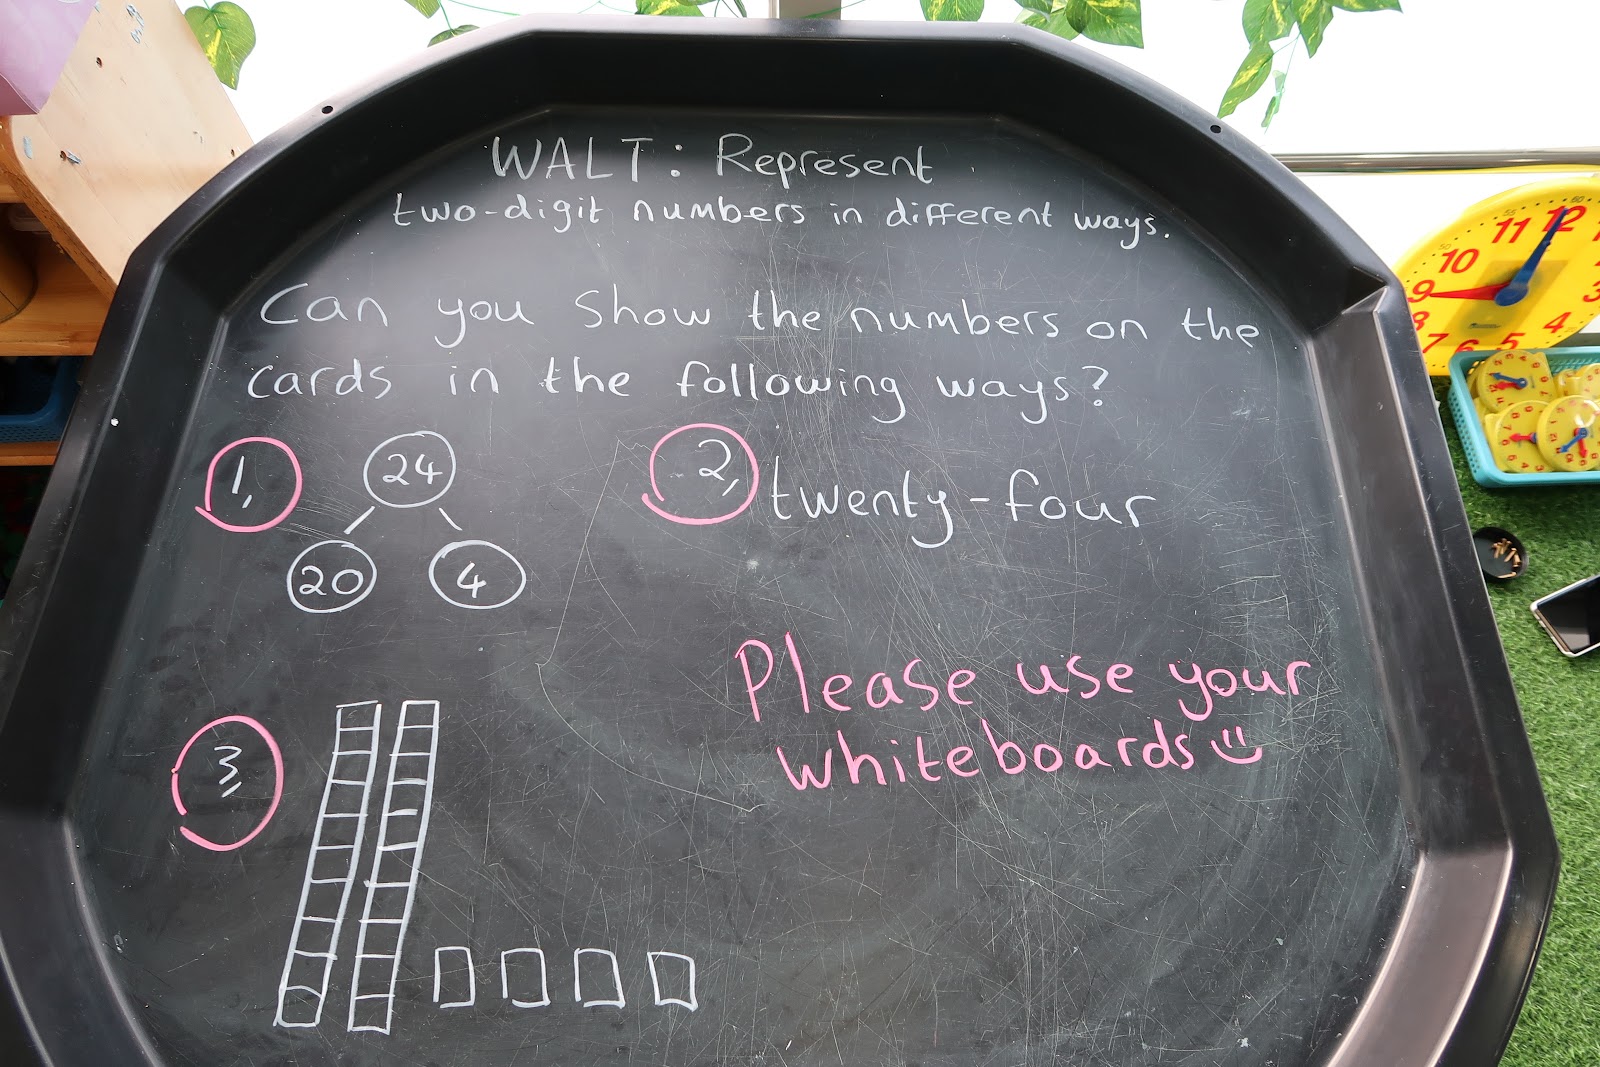 WALT: Represent
two-digit numbers in different ways.
Can you show the numbers on the
cards in the following ways?
1,
24
20
4
2,
twenty-four
3,
Please use your
whiteboards
12
11
10
9
8
7
6
5
4
3